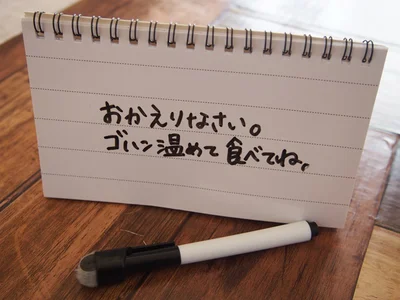 おかえりなさい。
ゴハン温めて食べてね、